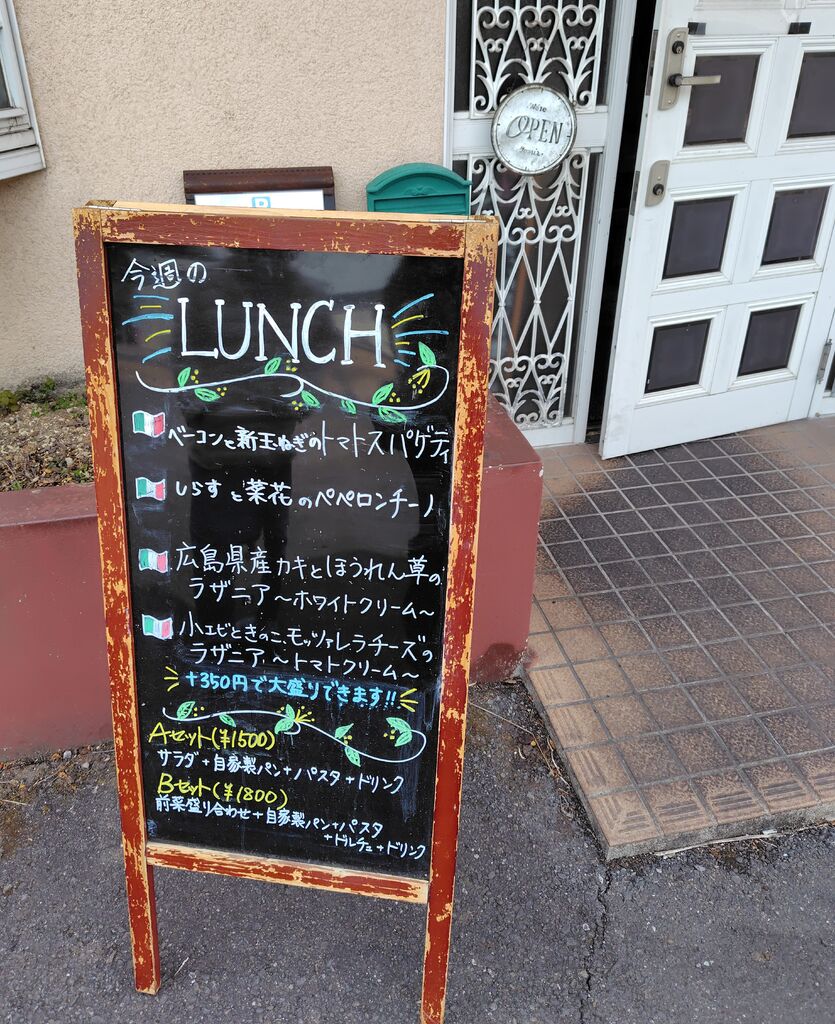 OPEN
P
今週の
LUNCH
ベーコンと新玉ねぎのトマトスパゲティ
しらすと菜花のペペロンチーノ
広島県産カキとほうれん草の
ラザニア〜ホワイトクリーム〜
小エビときのこ、モッツァレラチーズの
ラザニア〜トマトクリーム〜
+350円で大盛りできます!!
Aセット(¥1500)
サラダ+自家製パン+パスタ+ドリンク
Bセット(¥1800)
前菜盛り合わせ+自家製パン+パスタ
+ドルチェ+ドリンク